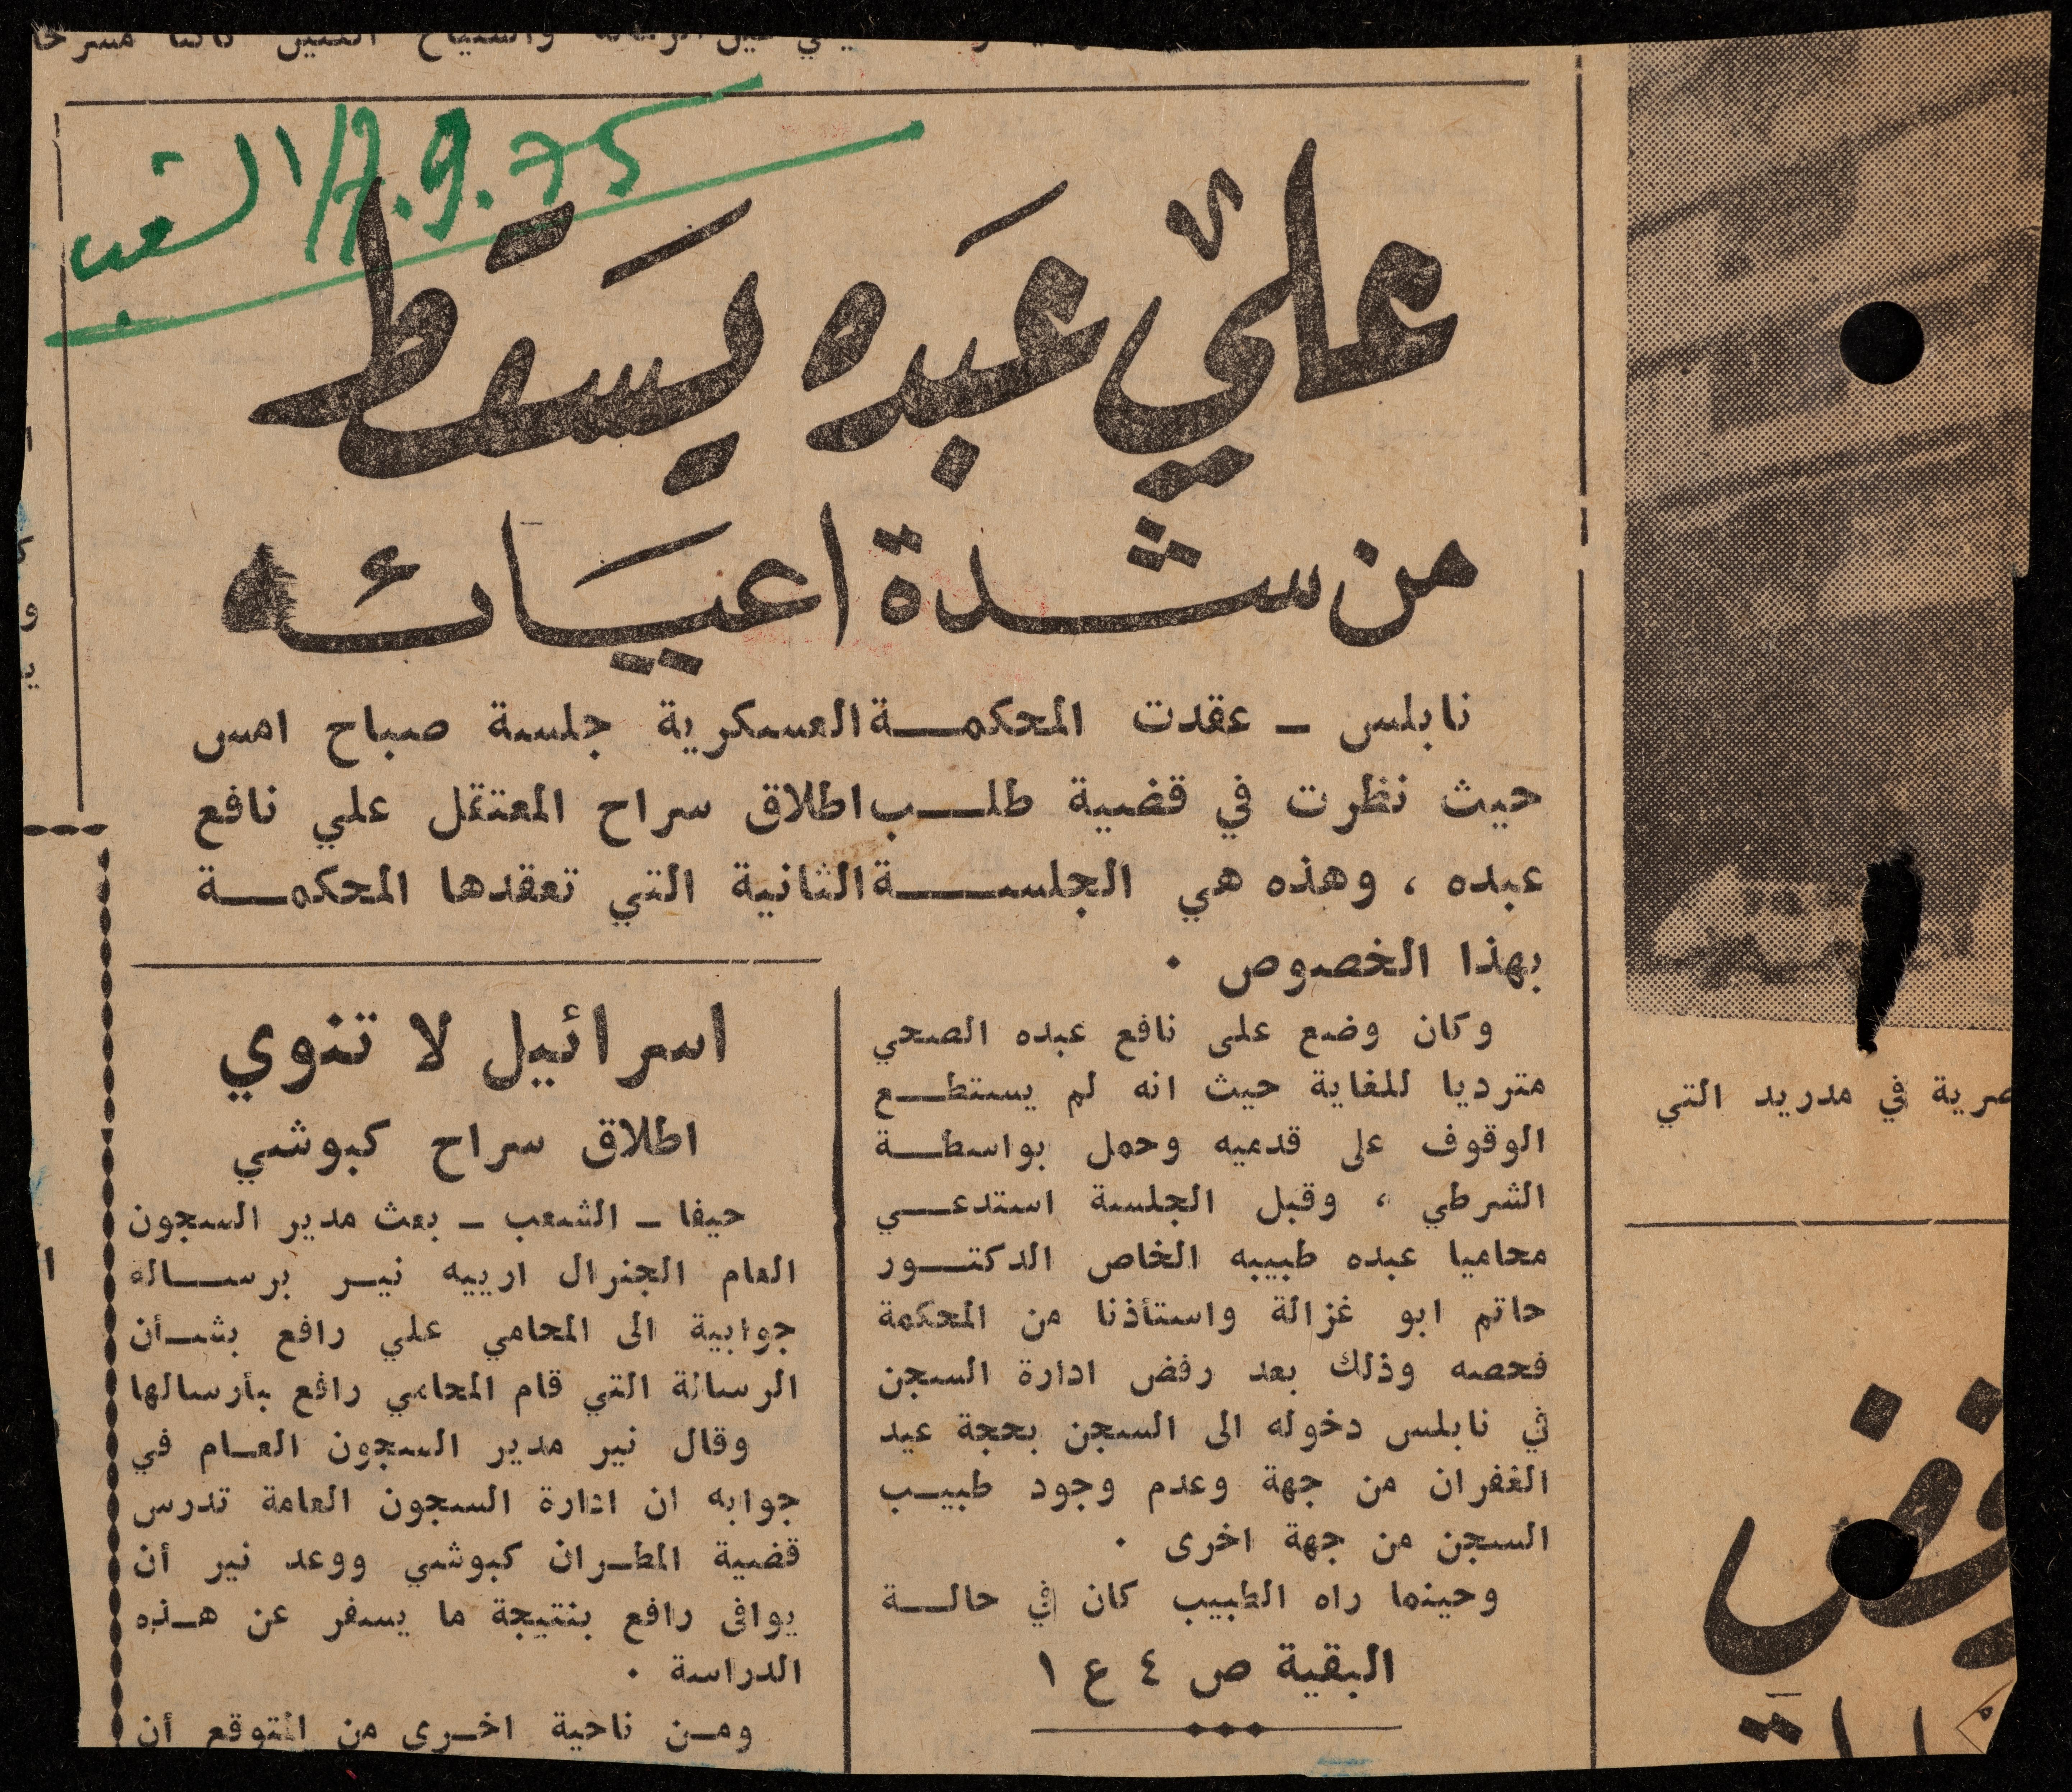 الشعب 17.9.75
عليّ عَبده يسَقط
من شدة اعيَائه
نابلس – عقدت المحكمة العسكرية جلسة صباح امس
حيث نظرت في قضية طلب اطلاق سراح المعتقل علي نافع
عبده ، وهذه هي الجلسة الثانية التي تعقدها المحكمة
بهذا الخصوص .
وكان وضع على نافع عبده الصحي
مترديا للغاية حيث انه لم يستطع
الوقوف على قدميه وحمل بواسطة
الشرطي ، وقبل الجلسة استدعي
محاميا عبده طبيبه الخاص الدكتور
حاتم ابو غزالة واستأذنا من المحكمة
فحصه وذلك بعد رفض ادارة السجن
في نابلس دخوله الى السجن بحجة عيد
الغفران من جهة وعدم وجود طبيب
السجن من جهة اخرى .
وحينما راه الطبيب كان في حالة
البقية ص ٤ ع ١
اسرائيل لا تنوي
اطلاق سراح كبوشي
حيفا – الشعب – بعث مدير السجون
العام الجنرال ارييه نير برساله
جوابية الى المحامي علي رافع بشأن
الرسالة التي قام المحامي رافع بأرسالها
وقال نير مدير السجون العام في
جوابه ان ادارة السجون العامة تدرس
قضية المطران كبوشي ووعد نير أن
يوافى رافع بنتيجة ما يسفر عن هذه
الدراسة .
ومن ناحية اخرى من المتوقع أن
صرية في مدريد التي